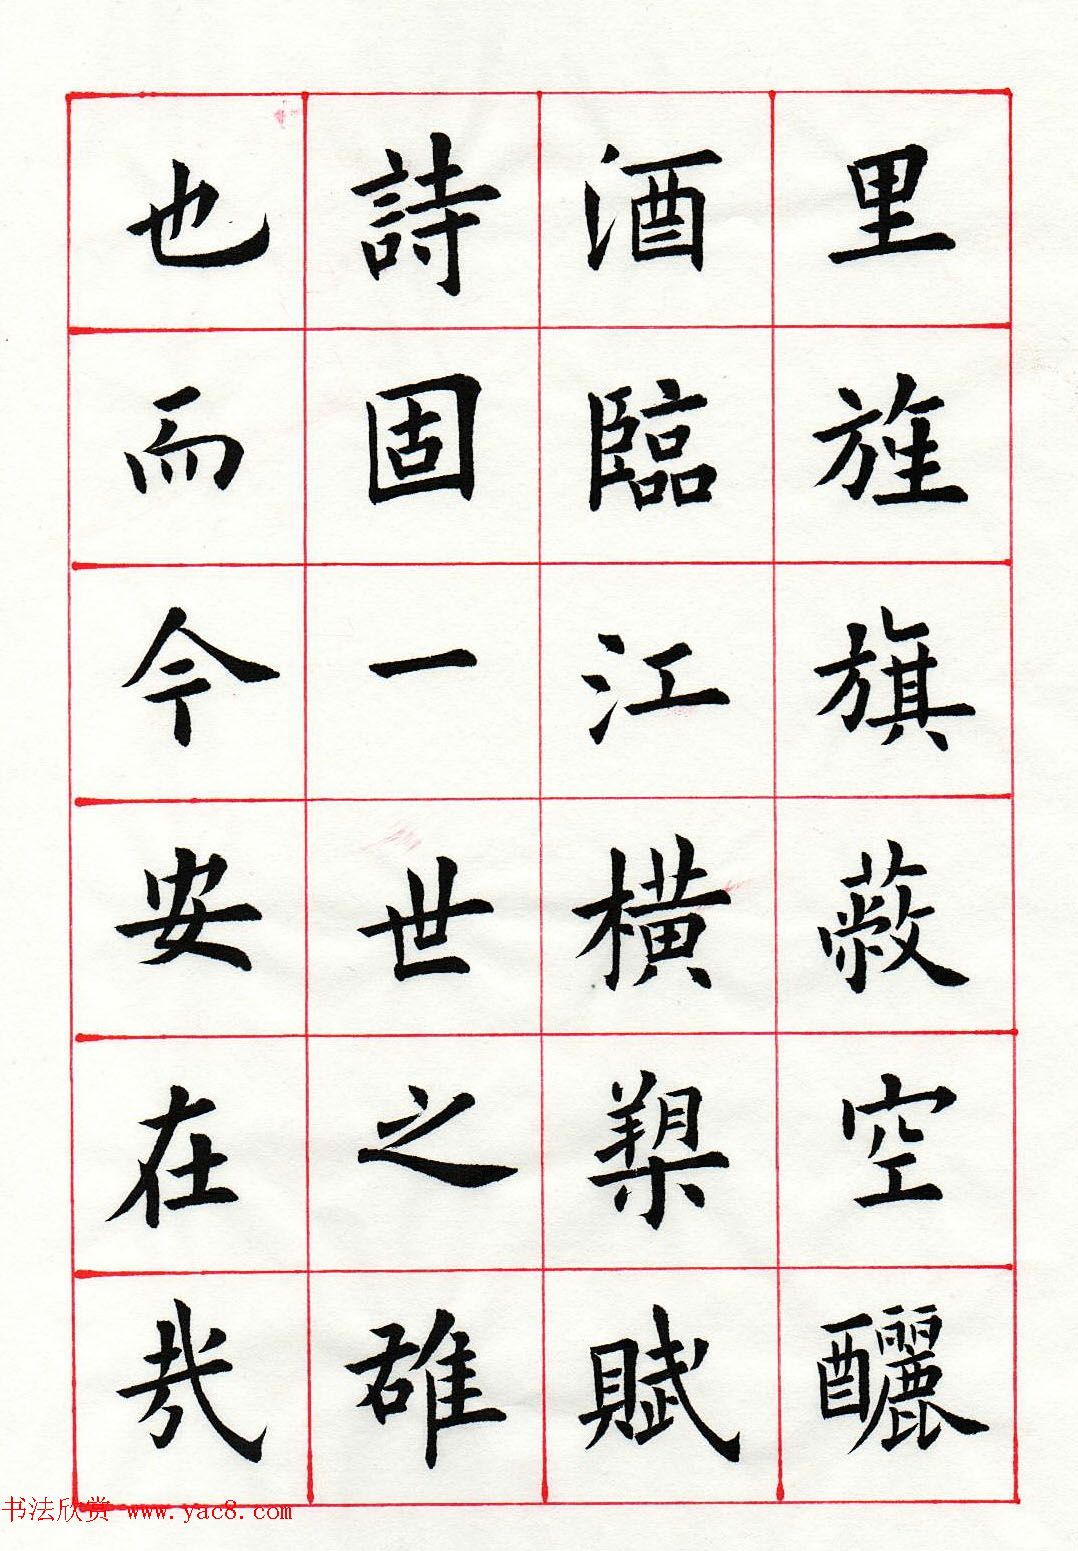 里旌旗蔽空釃
酒臨江橫槊賦
詩固一世之雄
也而今安在哉
书法欣赏 www.yac8.com